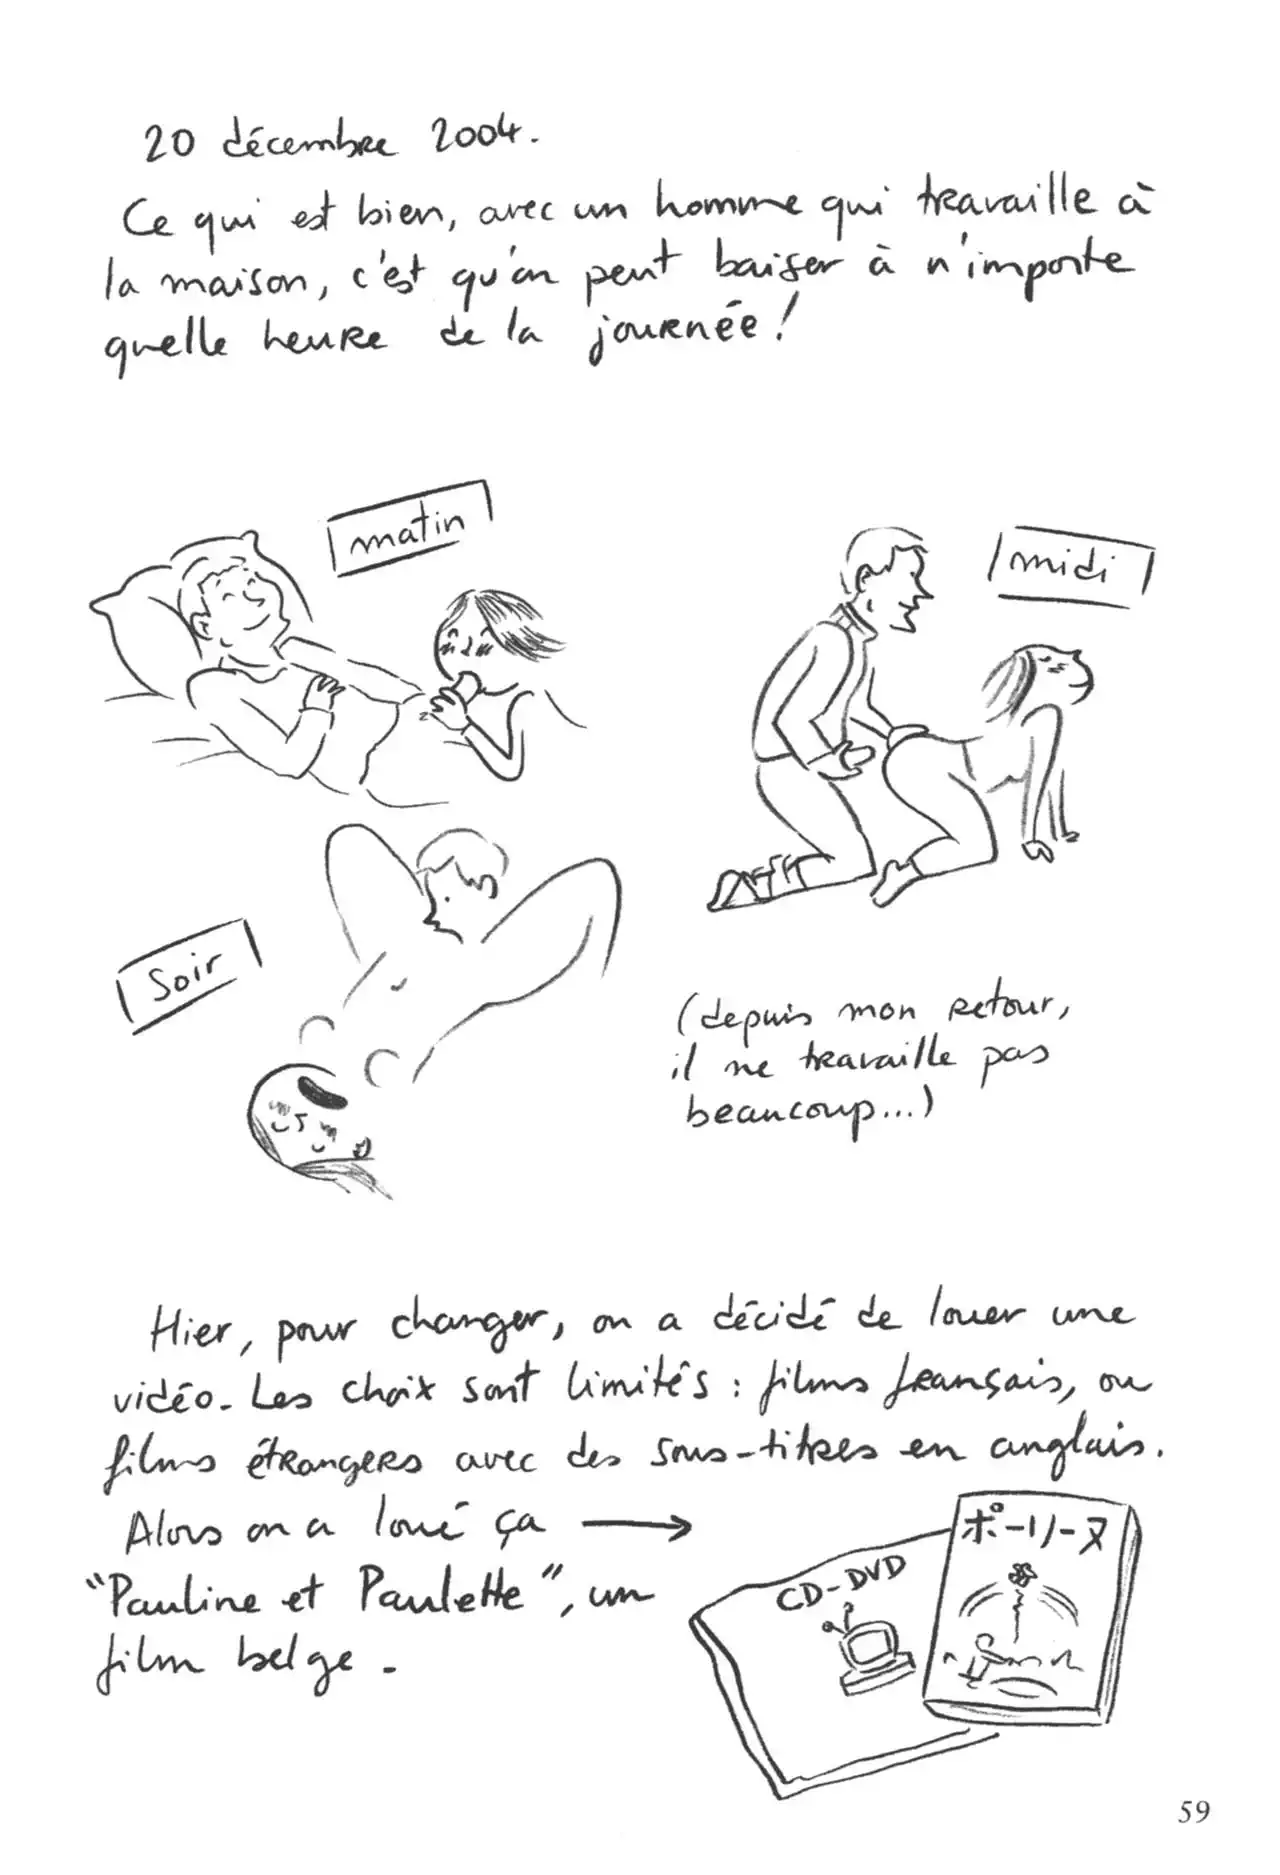 20 décembre 2004.
Ce qui est bien, avec un homme qui travaille à
la maison, c'est qu'on peut baiser à n'importe
quelle heure de la journée !
matin
midi
soir
(depuis mon retour,
il ne travaille pas
beaucoup...)
Hier, pour changer, on a décidé de louer une
vidéo. Les choix sont limités : films français, ou
films étrangers avec des sous-titres en anglais.
Alors on a loué ça →
"Pauline et Paulette", un
film belge.
CD-DVD
ポーリーヌ
59